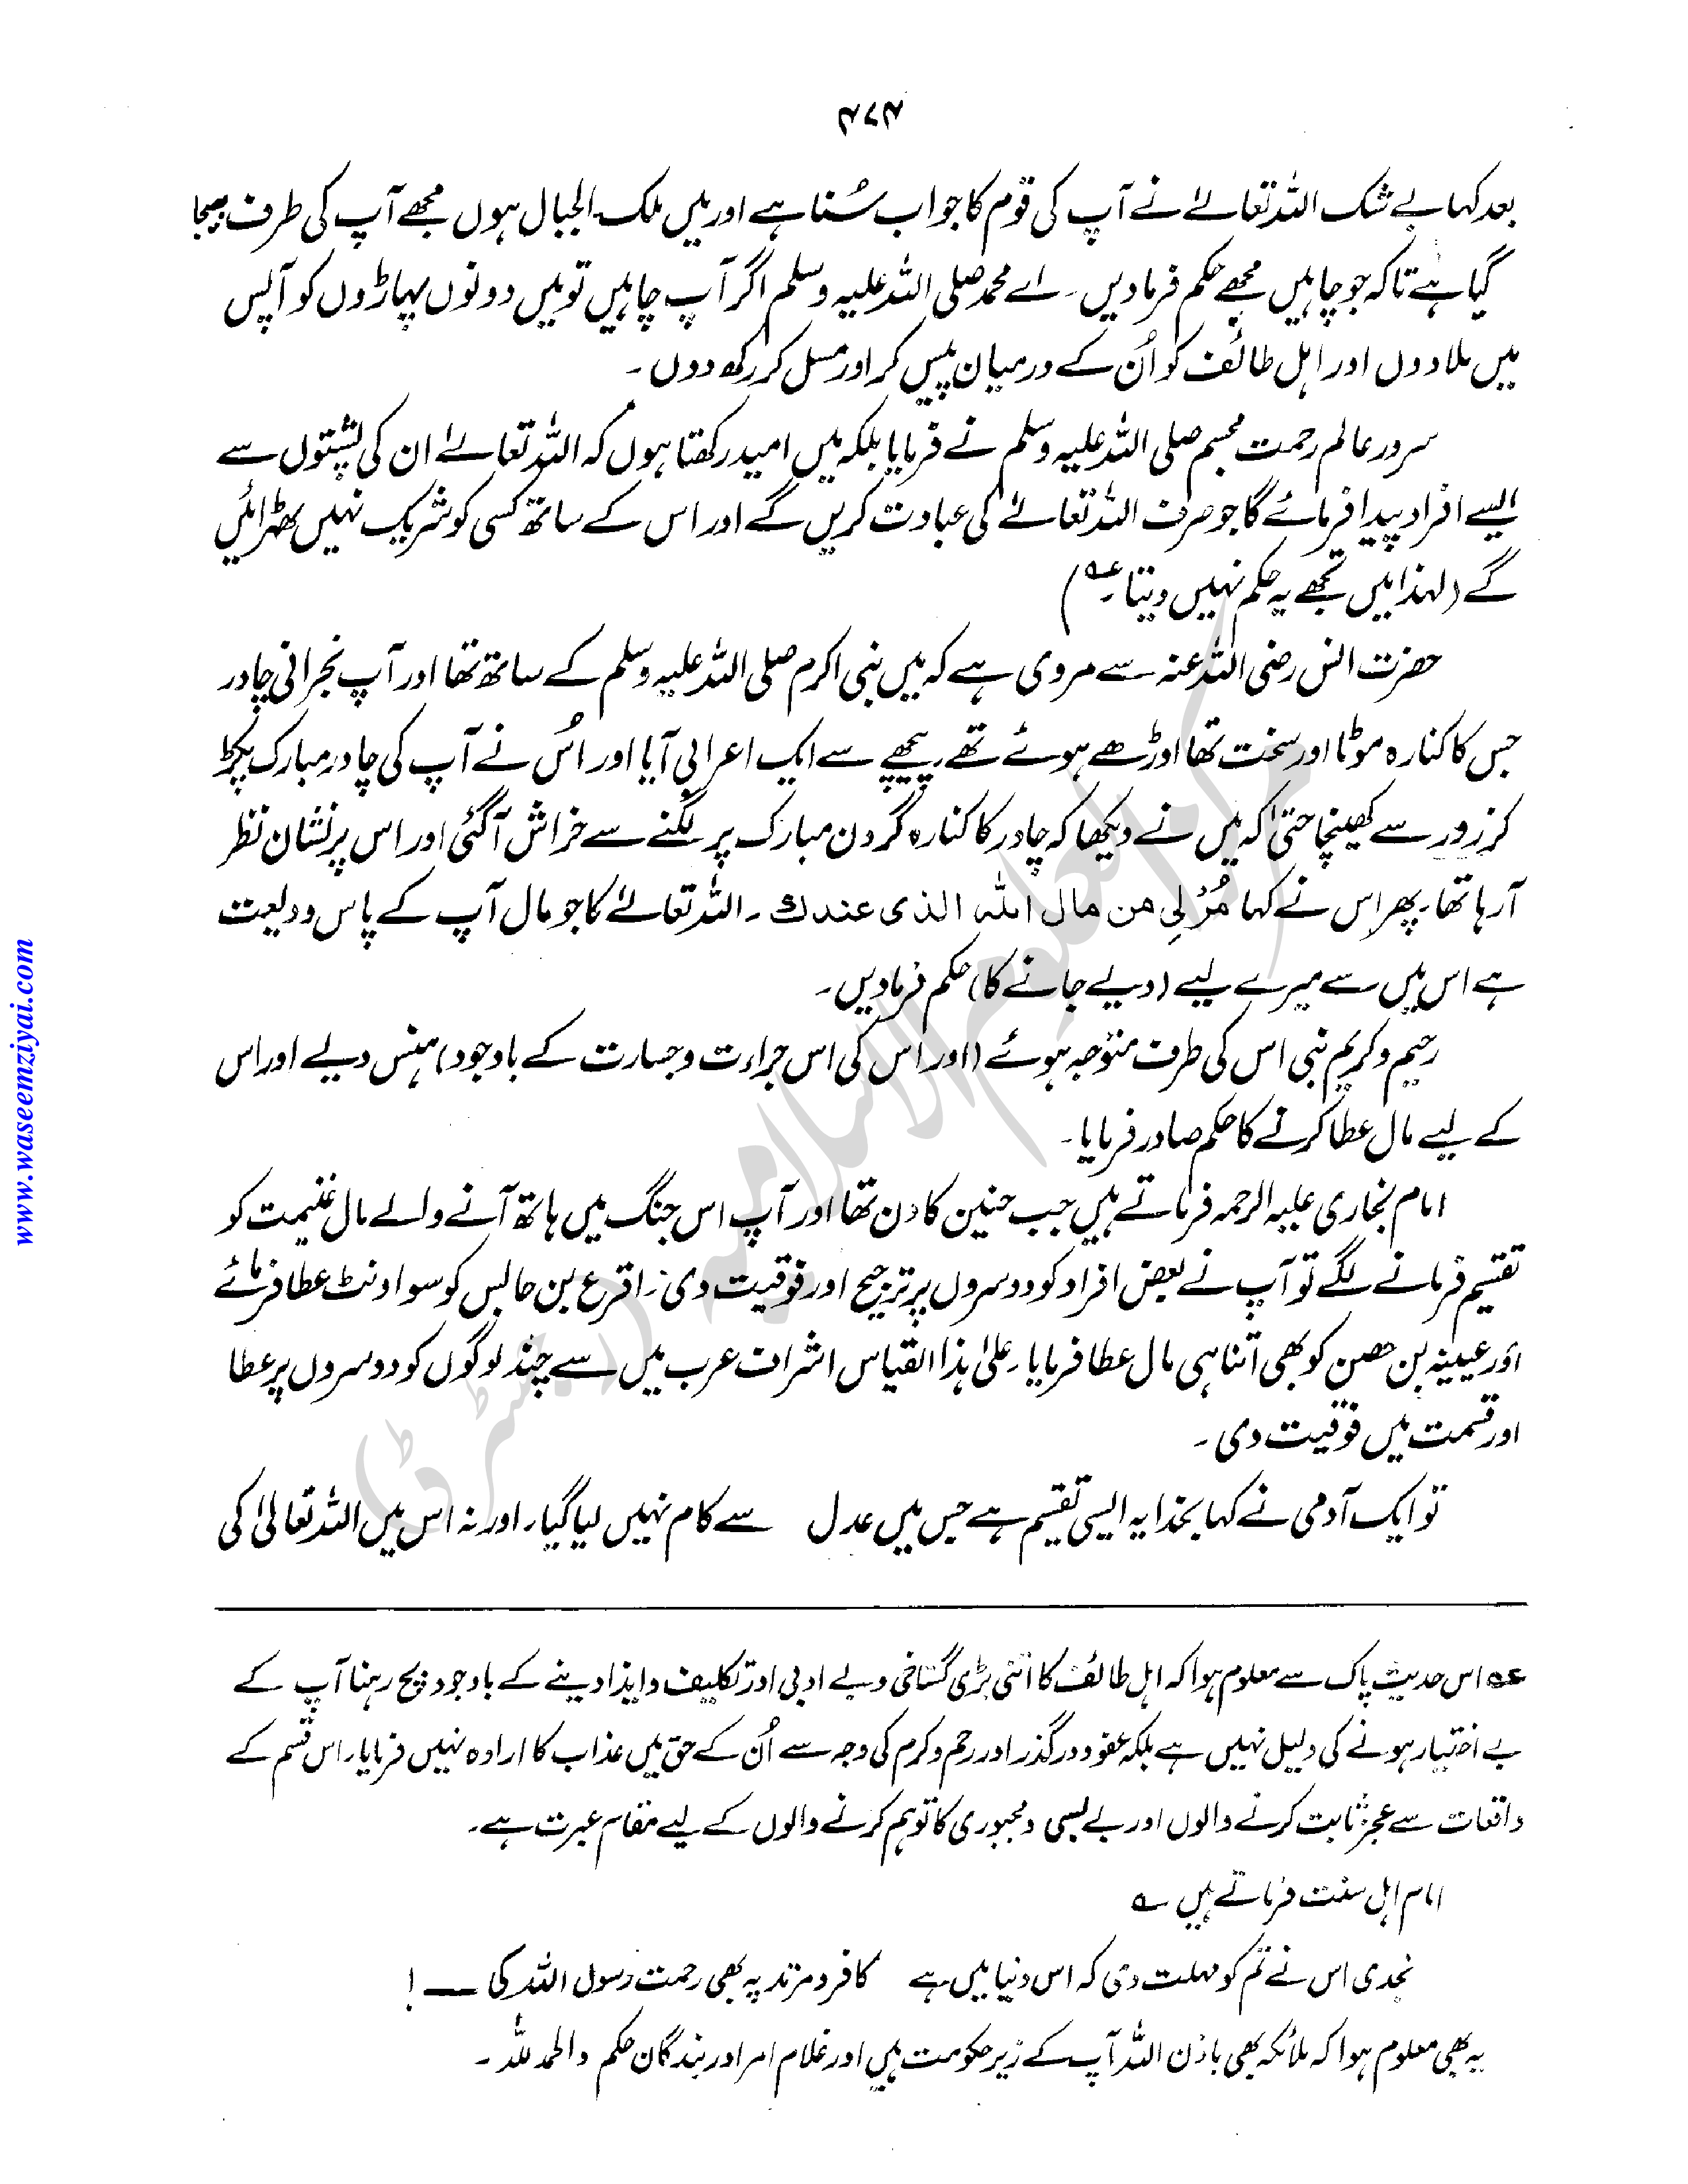 ۴۷۴
بعد کہا بے شک اللہ تعالےٰ نے آپ کی قوم کا جواب سُنا ہے اور میں ملک الجبال ہوں مجھے آپ کی طرف بھیجا
گیا ہے تاکہ جو چاہیں مجھے حکم فرمادیں۔ اے محمد صلی اللہ علیہ وسلم اگر آپ چاہیں تو میں دونوں پہاڑوں کو آپس
میں ملا دوں اور اہل طائف کو اُن کے درمیان پیس کر اور مسل کر رکھ دوں۔
سرور عالم رحمت مجسم صلی اللہ علیہ وسلم نے فرمایا بلکہ میں امید رکھتا ہوں کہ اللہ تعالےٰ ان کی پشتوں سے
ایسے افراد پیدا فرمائے گا جو صرف اللہ تعالےٰ کی عبادت کریں گے اور اس کے ساتھ کسی کو شریک نہیں ٹھہرائیں
گے (لہذا میں تجھے یہ حکم نہیں دیتا۔عہ)
حضرت انس رضی اللہ عنہ سے مروی ہے کہ میں نبی اکرم صلی اللہ علیہ وسلم کے ساتھ تھا اور آپ نجرانی چادر
جس کا کنارہ موٹا اور سخت تھا اوڑھے ہوئے تھے۔ پیچھے سے ایک اعرابی آیا اور اُس نے آپ کی چادر مبارک پکڑ
کر زور سے کھینچا حتیٰ کہ میں نے دیکھا کہ چادر کا کنارہ گردن مبارک پر لگنے سے خراش آگئی اور اس پر نشان نظر
آرہا تھا۔ پھر اس نے کہا مُرْ لِی من مال اللہ الذی عندك۔ اللہ تعالےٰ کا جو مال آپ کے پاس ودیعت
ہے اس میں سے میرے لیے (دیے جانے کا) حکم فرمادیں۔
رحیم و کریم نبی اس کی طرف متوجہ ہوئے (اور اس کی اس جراءت و جسارت کے باوجود) ہنس دیے اور اس
کے لیے مال عطا کرنے کا حکم صادر فرمایا۔
امام بخاری علیہ الرحمہ فرماتے ہیں جب حنین کا دن تھا اور آپ اس جنگ میں ہاتھ آنے والے مال غنیمت کو
تقسیم فرمانے لگے تو آپ نے بعض افراد کو دوسروں پر ترجیح اور فوقیت دی۔ اقرع بن حابس کو سو اونٹ عطا فرمائے
اور عیینہ بن حصن کو بھی اتنا ہی مال عطا فرمایا۔ علیٰ ہذا القیاس اشراف عرب میں سے چند لوگوں کو دوسروں پر عطا
اور قسمت میں فوقیت دی۔
تو ایک آدمی نے کہا بخدا یہ ایسی تقسیم ہے جس میں عدل سے کام نہیں لیا گیا۔ اور نہ اس میں اللہ تعالیٰ کی
عہ اس حدیث پاک سے معلوم ہوا کہ اہل طائف کا اتنی بڑی گستاخی و بے ادبی اور تکلیف و ایذا دینے کے باوجود بچ رہنا آپ کے
بے اختیار ہونے کی دلیل نہیں ہے بلکہ عفو و درگذر اور رحم و کرم کی وجہ سے اُن کے حق میں عذاب کا ارادہ نہیں فرمایا۔ اس قسم کے
واقعات سے عجز ثابت کرنے والوں اور بے بسی و مجبوری کا توہم کرنے والوں کے لیے مقام عبرت ہے۔
امام اہل سنت فرماتے ہیں ؎
نجدی اس نے تم کو مہلت دی کہ اس دنیا میں ہے کافر و مرتد پہ بھی رحمت رسول اللہ کی ــــ !
یہ بھی معلوم ہوا کہ ملائکہ بھی باذن اللہ آپ کے زیر حکومت ہیں اور غلام امر اور بندگان حکم والحمد للہ۔
www.waseemziyai.com
مرکز العلوم الاسلامیہ (رجسٹرڈ)